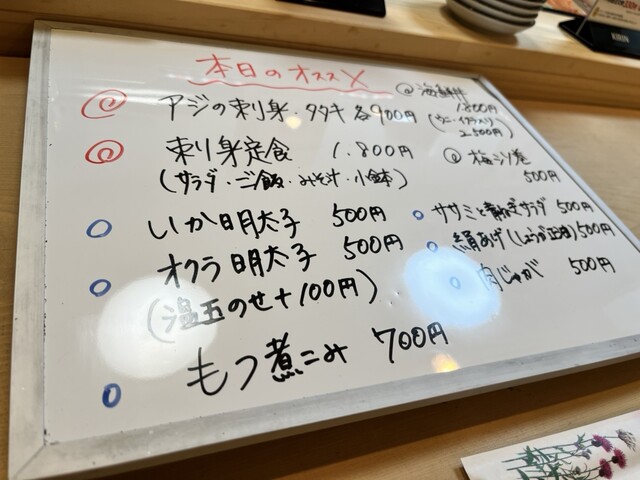 本日のオススメ
アジの刺し身・タタキ 各900円
刺り身定食 1.800円
(サラダ・ご飯・みそ汁・小鉢)
いか明太子 500円
オクラ明太子 500円
(温玉のせ+100円)
もつ煮こみ 700円
海鮮丼
1.800円
(ウニ・イクラ入り)
2.500円
梅シソ巻
500円
ササミと青ねぎサラダ 500円
絹あげ(しょうが正油) 500円
肉じゃが 500円
KIRIN